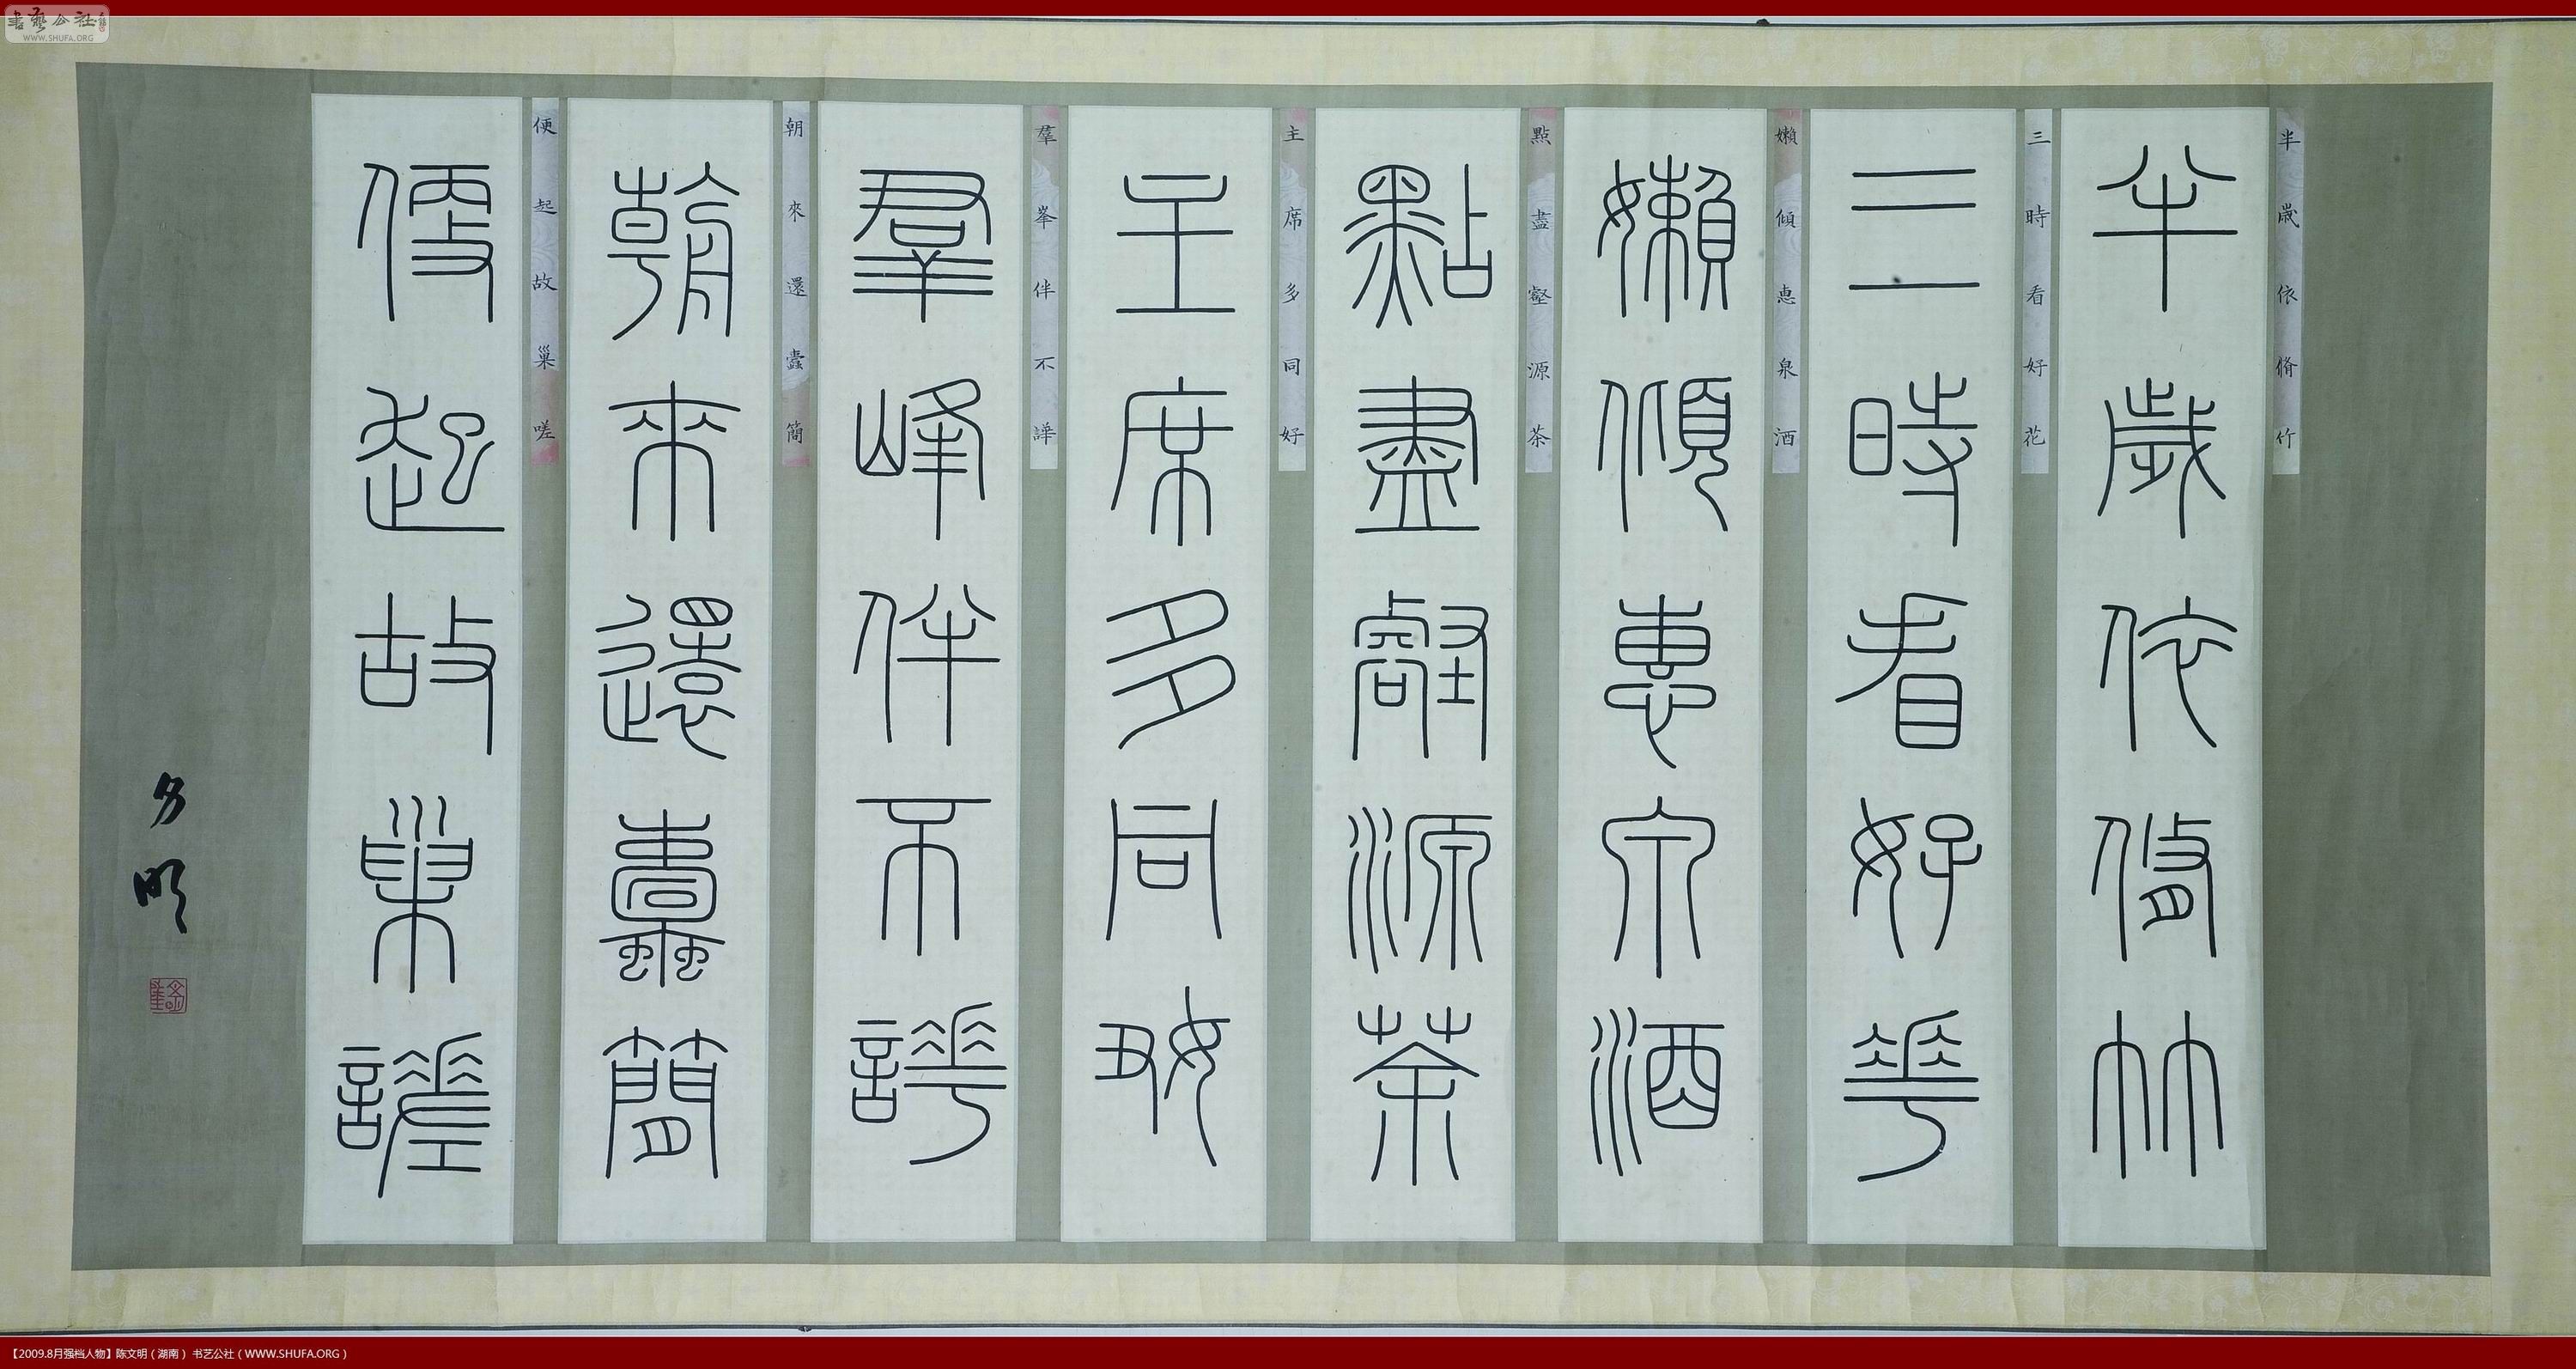 書藝公社
WWW.SHUFA.ORG
半歲依脩竹
半歲依脩竹
三時看好花
三時看好花
嬾傾惠泉酒
嬾傾惠泉酒
點盡壑源茶
點盡壑源茶
主席多同好
主席多同好
羣峯伴不譁
羣峯伴不譁
朝來還蠹簡
朝來還蠹簡
便起故巢嗟
便起故巢嗟
文明
【2009.8月强档人物】陈文明（湖南） 书艺公社（WWW.SHUFA.ORG）